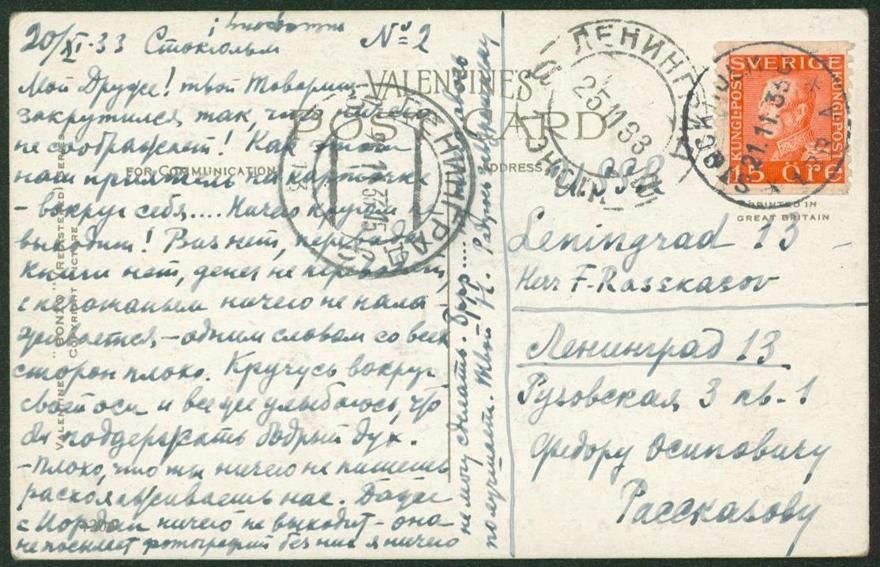 20/XI-33 Стокгольм № 2
Мой Друже! твой Товарищ
закрутился так, что ничего
не соображает! Как этот
наш приятель на карточке
- вокруг себя.... Ничего кругом не
выходит! Виз нет, перевода
книги нет, денег не переводят,
с ничего не нала
живается - одним словом со всех
сторон плохо. Кручусь вокруг
своей оси и все же улыбаюсь, что
бы поддержать бодрый дух.
- Плохо, что ты ничего не пишешь
нас. Даже
с ничего не выходит - она
не посылает фотографий без них я ничего
не могу сделать.
получишь. Твой
VALENTINE'S
POST CARD
FOR COMMUNICATION
ADDRESS
VALENTINE'S "BONZO" (REGISTERED) SERIES
COPYRIGHT PICTURE
ЛЕНИНГРАД
25 11 33
ЛЕНИНГРАД
SVERIGE
KUNGL-POST
KUNGL-POST
15 ÖRE
21.11.33
PRINTED IN
GREAT BRITAIN
U.S.S.R.
Leningrad 13 -
Herr F-Rasskasov
Ленинград 13
Рузовская 3 кв-1
Федору Осиповичу
Рассказову